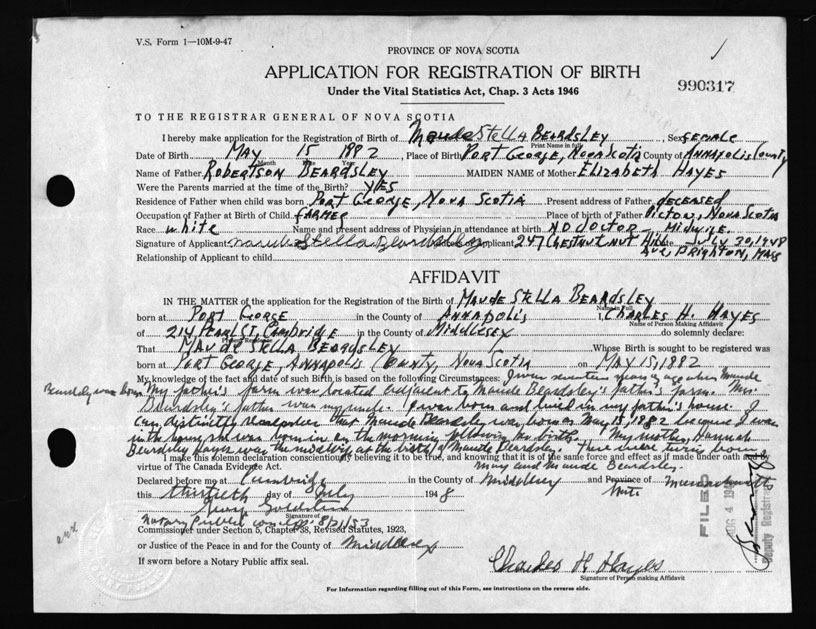 V.S. Form 1—10M-9-47
PROVINCE OF NOVA SCOTIA
APPLICATION FOR REGISTRATION OF BIRTH
990317
Under the Vital Statistics Act, Chap. 3 Acts 1946
TO THE REGISTRAR GENERAL OF NOVA SCOTIA
I hereby make application for the Registration of Birth of Maude Stella BEARDSLEY, Sex FEMALE
Print Name in full
Date of Birth MAY 15 1882, Place of Birth PORT GEORGE, NOVA SCOTIA County of ANNAPOLIS County
Month Year
Name of Father ROBERTSON BEARDSLEY MAIDEN NAME of Mother ELIZABETH HAYES
Were the Parents married at the time of Birth? YES
Residence of Father when child was born PORT GEORGE, NOVA SCOTIA Present address of Father DECEASED
Occupation of Father at Birth of Child FARMER Place of birth of Father PICTOU, NOVA SCOTIA
Race white Name and present address of Physician in attendance at birth NO DOCTOR MIDWIFE.
Signature of Applicant Maude Stella Beardsley Applicant 247 CHESTNUT HILL Date July 30, 1948
AVE, BRIGHTON, MASS
Relationship of Applicant to child
AFFIDAVIT
IN THE MATTER of the application for the Registration of the Birth of MAUDE STELLA BEARDSLEY
born at PORT GEORGE in the County of ANNAPOLIS I, CHARLES H. HAYES
Name of Person Making Affidavit
of 214 PEARL ST, CAMBRIDGE in the County of MIDDLESEX do solemnly declare:
That MAUDE STELLA BEARDSLEY Whose Birth is sought to be registered was
born at PORT GEORGE, ANNAPOLIS COUNTY, NOVA SCOTIA on MAY 15, 1882
My knowledge of the fact and date of such Birth is based on the following Circumstances: I was seventeen years of age when Maude
Beardsley was born. My father's farm was located adjacent to Maude Beardsley's father's farm. Mrs.
Beardsley's father was my uncle. I was born and lived in my father's house. I
can distinctly remember that Maude Beardsley was born on May 15, 1882 because I was
in the house she was born in on the morning following the birth. My mother, Hannah
Beardsley Hayes was the midwife at the birth of Maude Beardsley. There were twins born
I make this solemn declaration conscientiously believing it to be true, and knowing that it is of the same force and effect as if made under oath and by
virtue of The Canada Evidence Act. May and Maude Beardsley.
Declared before me at Cambridge in the County of Middlesex and Province of Massachusetts
this thirtieth day of July 1948
Signature of
Notary Public 8/21/53
Commissioner under Section 5, Chapter 38, Revised Statutes, 1923,
or Justice of the Peace in and for the County of Middlesex
If sworn before a Notary Public affix seal.
Charles H Hayes
Signature of Person making Affidavit
FILED
AUG 4
Deputy Registrar
For Information regarding filling out of this Form, see instructions on the reverse side.